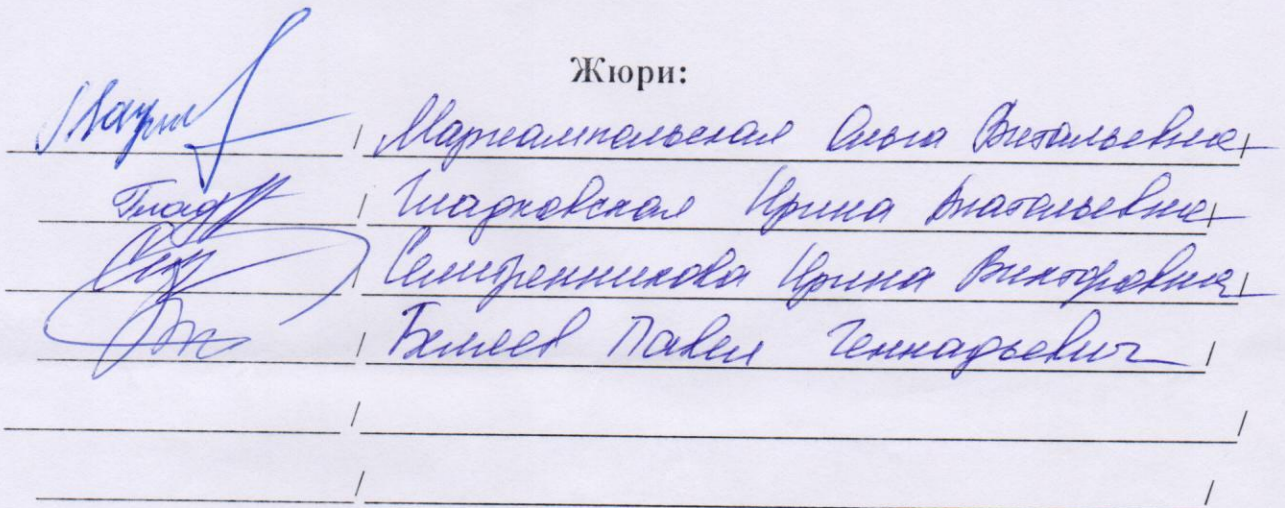 Жюри:
/ Мариампольская Ольга Витальевна /
/ Гладковская Ирина Анатольевна /
/ Семитренникова Ирина Викторовна /
/ Павел Геннадьевич /
/ /
/ /